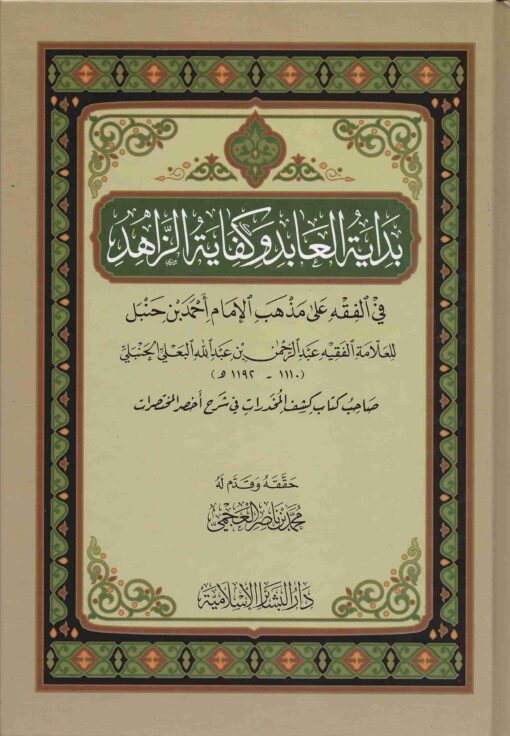 بِدَايَةُ العَابِدِ وَكِفَايَةُ الزَّاهِدِ
فِي الفِقْهِ عَلَى مَذْهَبِ الإِمَامِ أَحْمَدَ بْنِ حَنْبَل
لِلعَلَّامَةِ الفَقِيهِ عَبْدِ الرَّحْمٰنِ بْنِ عَبْدِ اللهِ البَعْلِيِّ الحَنْبَلِيِّ
(١١١٠ - ١١٩٢ هـ)
صَاحِبُ كِتَابِ كَشْفِ المُخَدَّرَاتِ فِي شَرْحِ أَخْصَرِ المُخْتَصَرَاتِ
حَقَّقَهُ وَقَدَّمَ لَهُ
مُحَمَّدُ بْنُ نَاصِرِ العَجْمِيُّ
دَارُ البَشَائِرِ الإِسْلَامِيَّة